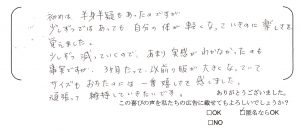 初めは、半身半疑もあったのですが
少しずつではあっても 自分の体が軽くなっていきのに 楽しさを
覚えました。
少しずつ減っていくので、あまり実感がわかなかったのも
事実ですが、3ヶ月たって以前の服が大きくなっていて
サイズもおちたのには一番嬉しくて感じました。
頑張って維持していきたいです。
ありがとうございました。
この喜びの声を私たちの広告に載せてもよろしいでしょうか？
□OK ☑匿名ならOK
□NO